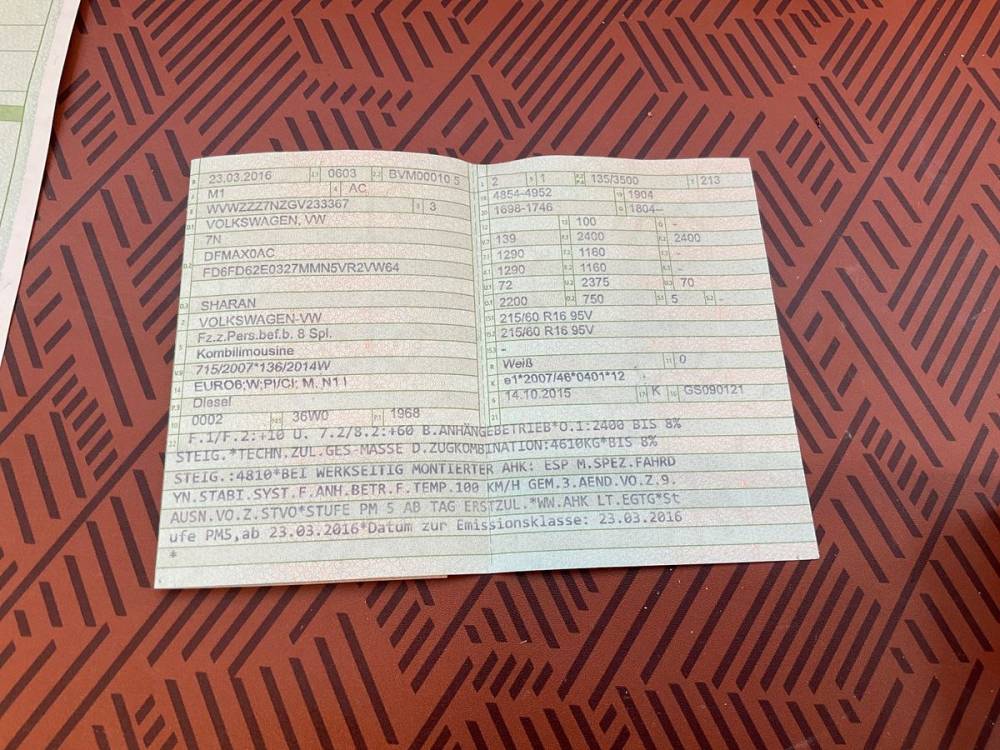 23.03.2016 0603 BVM00010 5
M1 AC
WVWZZZ7NZGV233367 3
VOLKSWAGEN, VW
7N
DFMAX0AC
FD6FD62E0327MMN5VR2VW64
SHARAN
VOLKSWAGEN-VW
Fz.z.Pers.bef.b. 8 Spl.
Kombilimousine
715/2007*136/2014W
EURO6;W;PI/CI; M, N1 I
Diesel
0002 36W0 1968
2 1 135/3500 213
4854-4952 1904
1698-1746 1804–
100 -
139 2400 2400
1290 1160 -
1290 1160 -
72 2375 70
2200 750 5 -
215/60 R16 95V
215/60 R16 95V
-
Weiß 0
e1*2007/46*0401*12
14.10.2015 K GS090121
F.1/F.2:+10 U. 7.2/8.2:+60 B.ANHÄNGEBETRIEB*O.1:2400 BIS 8%
STEIG.*TECHN.ZUL.GES-MASSE D.ZUGKOMBINATION:4610KG*BIS 8%
STEIG.:4810*BEI WERKSEITIG MONTIERTER AHK: ESP M.SPEZ.FAHRD
YN.STABI.SYST.F.ANH.BETR.F.TEMP.100 KM/H GEM.3.AEND.VO.Z.9.
AUSN.VO.Z.STVO*STUFE PM 5 AB TAG ERSTZUL.*WW.AHK LT.EGTG*St
ufe PM5,ab 23.03.2016*Datum zur Emissionsklasse: 23.03.2016
*